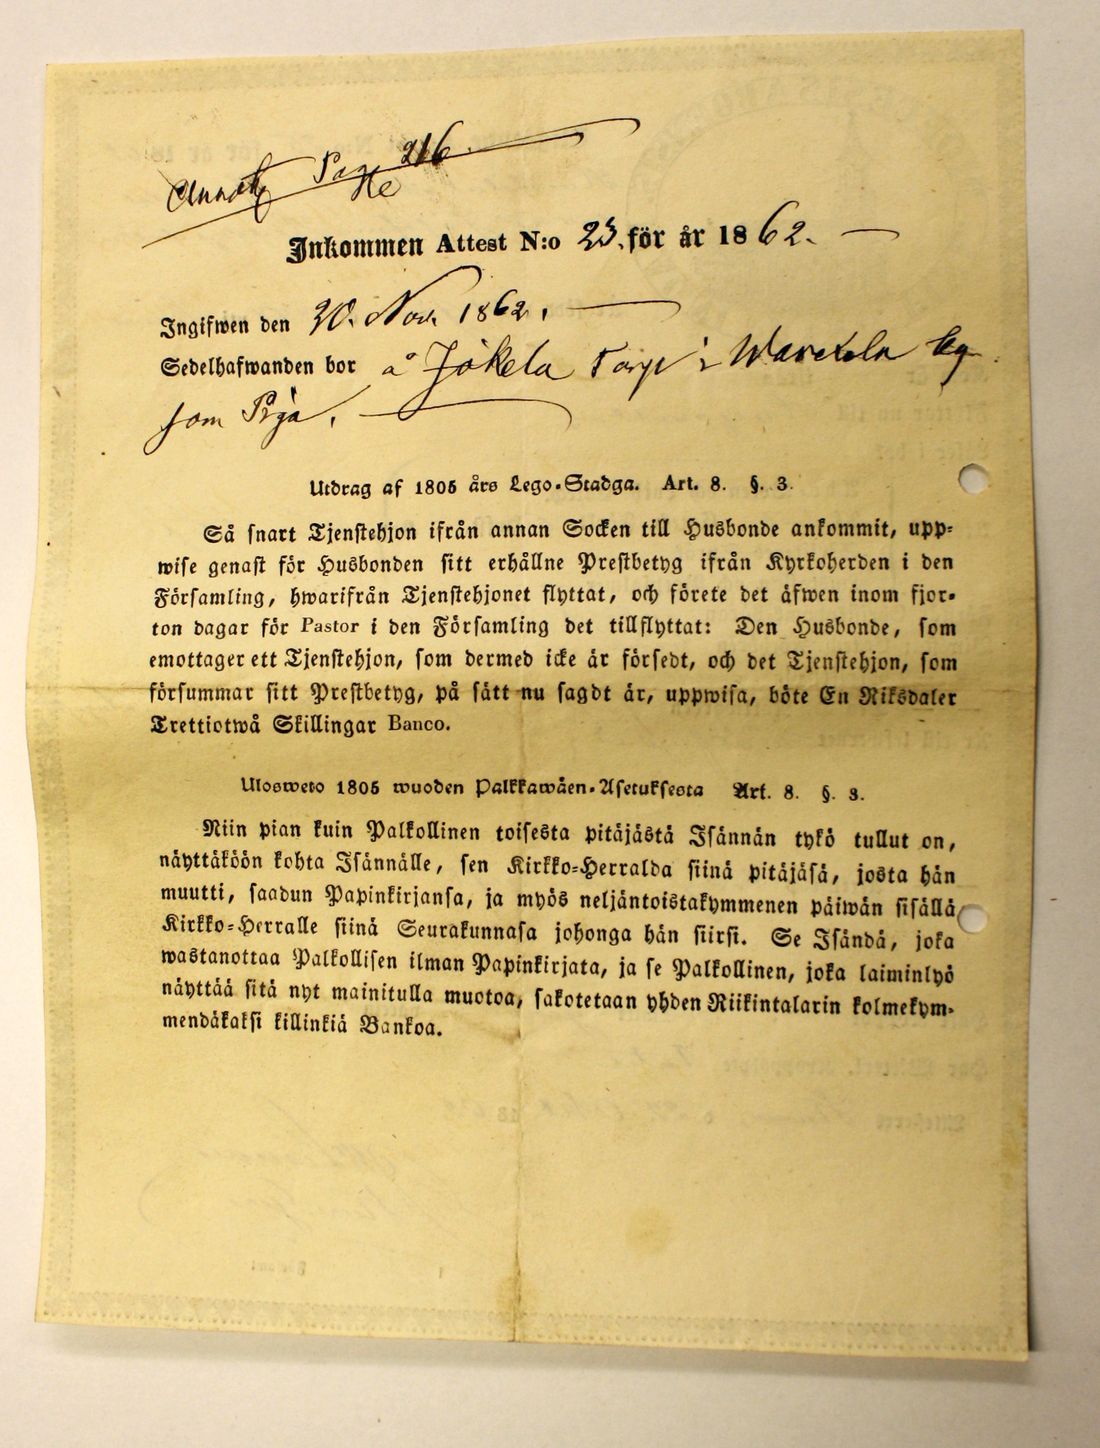 Pag 216
Inkommen Attest N:o 23. för år 1862.
Ingifwen den 20. Nov. 1862.
Sedelhafwanden bor å Jokela Torp i
som Piga.
Utdrag af 1805 års Lego-Stadga. Art. 8. §. 3.
Så snart Tjenstehjon ifrån annan Socken till Husbonde ankommit, upp-
wise genast för Husbonden sitt erhållne Prestbetyg ifrån Kyrkoherden i den
Församling, hwarifrån Tjenstehjonet flyttat, och förete det äfwen inom fjor-
ton dagar för Pastor i den Församling det tillflyttat: Den Husbonde, som
emottager ett Tjenstehjon, som dermed icke är försedt, och det Tjenstehjon, som
försummar sitt Prestbetyg, på sätt nu sagdt är, uppwisa, böte En Riksdaler
Trettiotwå Skillingar Banco.
Ulosweto 1805 wuoden Palkkawäen-Asetuksesta Art. 8. §. 3.
Niin pian kuin Palkollinen toisesta pitäjästä Isännän tykö tullut on,
näyttäköön kohta Isännälle, sen Kirkko-Herralda siinä pitäjäsä, josta hän
muutti, saadun Papinkirjansa, ja myös neljäntoistakymmenen päiwän sisällä
Kirkko-Herralle siinä Seurakunnasa johonga hän siirsi. Se Isändä, joka
wastanottaa Palkollisen ilman Papinkirjata, ja se Palkollinen, joka laiminlyö
näyttää sitä nyt mainitulla muotoa, sakotetaan yhden Riikintalarin kolmekym-
mendäkaksi killinkiä Bankoa.